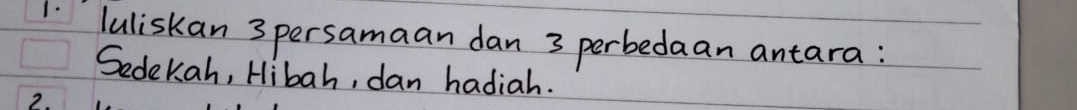 1. Tuliskan 3 persamaan dan 3 perbedaan antara:
Sedekah, Hibah, dan hadiah.
2.